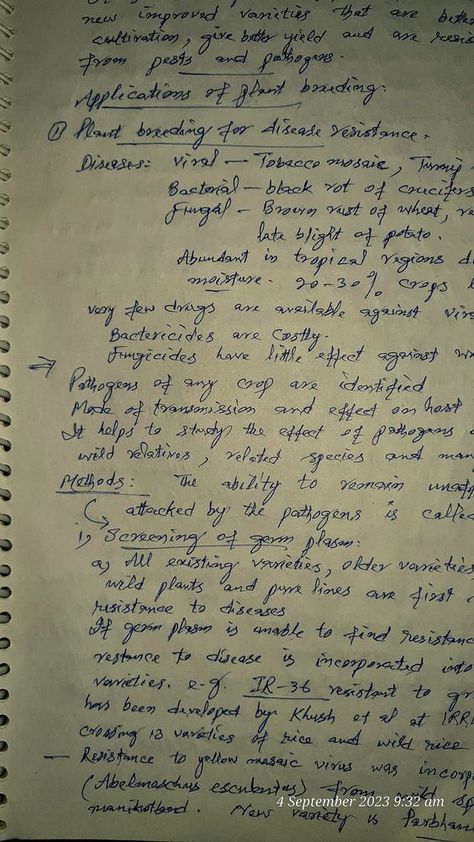 new improved varieties that are bette
cultivation, give better yield and are resis
from pests and pathogens.
Applications of plant breeding:
① Plant breeding for disease resistance.
Diseases: Viral — Tobacco mosaic, Turnip
Bacterial — black rot of crucifers
Fungal — Brown rust of wheat, re
late blight of potato.
Abundant in tropical regions d
moisture. 20-30% crops l
very few drugs are available against vir
Bactericides are costly.
Fungicides have little effect against
⇒ Pathogens of any crop are identified
Mode of transmission and effect on host
It helps to study the effect of pathogens
wild relatives, related species and
Methods: The ability to remain unaff
attacked by the pathogens is calle
i) Screening of germ plasm:
a) All existing varieties, older varieties
wild plants and pure lines are first
resistance to diseases
If germ plasm is unable to find resistanc
resitance to disease is incorporated into
varieties. e.g. IR-36 resistant to gr
has been developed by Khush et al at IRRI
crossing 13 varieties of rice and wild rice
— Resistance to yellow mosaic virus was incorp
(Abelmoschus esculentus) from wild sp
New variety is Parbhan
4 September 2023 9:32 am